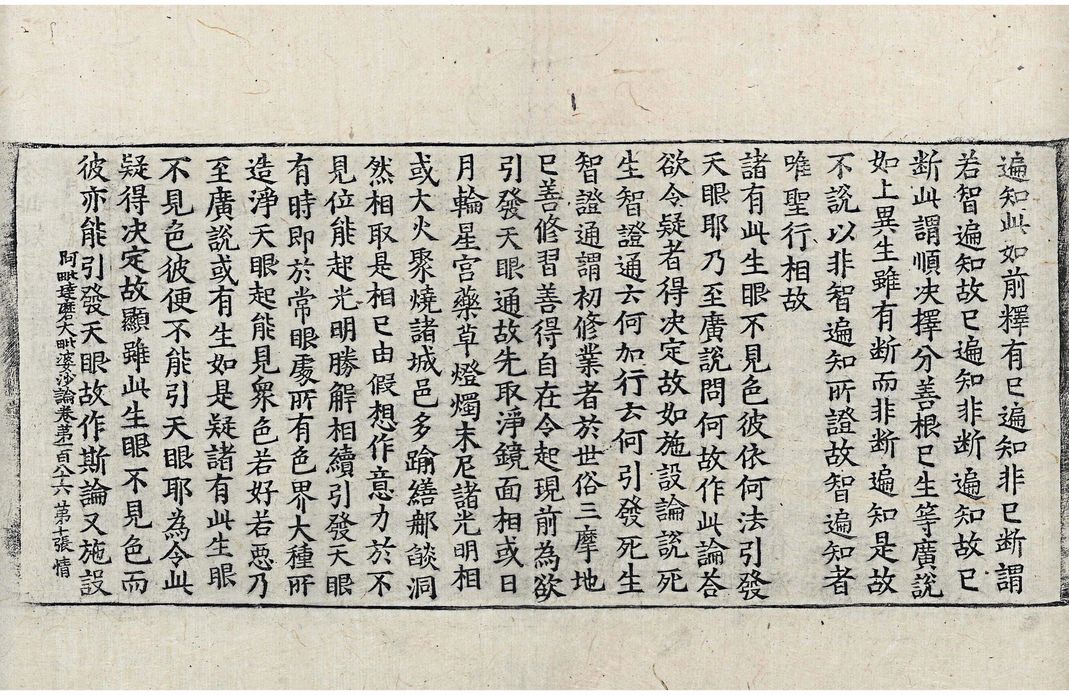 遍知此如前釋有已遍知非已断謂
若智遍知故已遍知非断遍知故已
断此謂順决擇分善根已生等廣說
如上異生雖有断而非断遍知是故
不說以非智遍知所證故智遍知者
唯聖行相故
諸有此生眼不見色彼依何法引發
天眼耶乃至廣說問何故作此論荅
欲令疑者得决定故如施設論說死
生智證通云何加行云何引發死生
智證通謂初修業者於世俗三摩地
已善修習善得自在令起現前為欲
引發天眼通故先取淨鏡面相或日
月輪星宮藥草燈燭末尼諸光明相
或大火聚燒諸城邑多踰繕那𦦨洞
然相取是相已由假想作意力於不
見位能起光明勝解相續引發天眼
有時即於常眼處所有色界大種所
造淨天眼起能見衆色若好若惡乃
至廣說或有生如是疑諸有此生眼
不見色彼便不能引天眼耶為令此
疑得决定故顯雖此生眼不見色而
彼亦能引發天眼故作斯論又施設
阿毗達磨大毗婆沙論卷第一百八十六 第七張 情